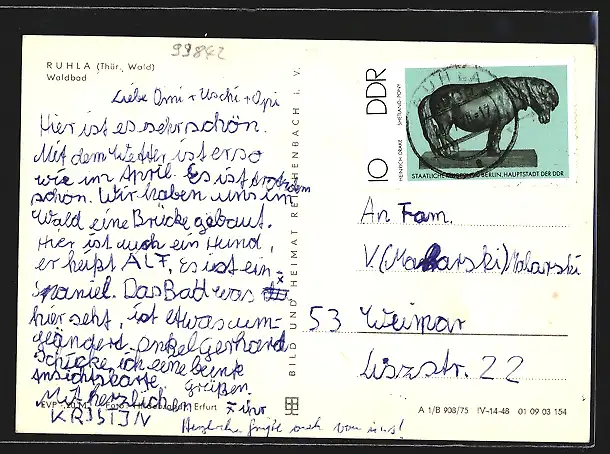 99842
RUHLA (Thür. Wald)
Waldbad
Liebe Omi + Uschi + Opi
Hier ist es sehr schön.
Mit dem Wetter ist er so
wie im April. Es ist trotzdem
schön. Wir haben uns im
Wald eine Brücke gebaut.
Hier ist auch ein Hund,
er heißt ALF, Es ist ein
Spaniel. Das Bad was
hier seht, ist etwas um-
geändert. Onkel Gerhard
schicke ich eine bunte
Ansichtskarte.
Mit herzlichen Grüßen
KRISTIN
x ihr
Herzliche Grüße auch von uns!
EVP Foto: Erfurt
BILD UND HEIMAT REICHENBACH i. V.
DDR
10
HEINRICH DRAKE SHETLAND-PONY
STAATLICHE MUSEEN ZU BERLIN, HAUPTSTADT DER DDR
RUHLA
An Fam.
V. (Makarski) Malarski
53 Weimar
Lisztstr. 22
A 1/B 908/75 IV-14-48 01 09 03 154